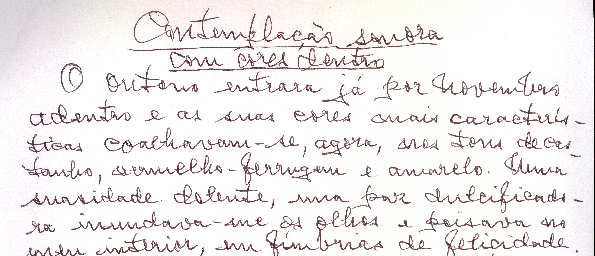 Contemplação sonora
com cores dentro
O outono entrara já por novembro
adentro e as suas cores mais caracterís-
ticas coalhavam-se, agora, nos tons de cas-
tanho, vermelho-ferrugem e amarelo. Uma
suavidade dolente, uma paz dulcificado-
ra inundava-me os olhos e poisava no
meu interior, em fímbrias de felicidade.